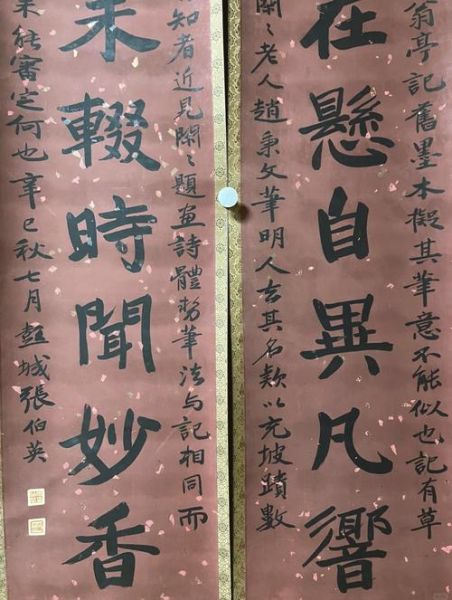 翁亭記舊墨本擬其筆意不能似也記有草
在懸自異凡響
閑〻老人趙秉文筆明人去其名款以充坡蹟數
知者近見閑〻題畫詩體勢筆法与記相同而
未輟時聞妙香
未能審定何也辛巳秋七月彭城張伯英